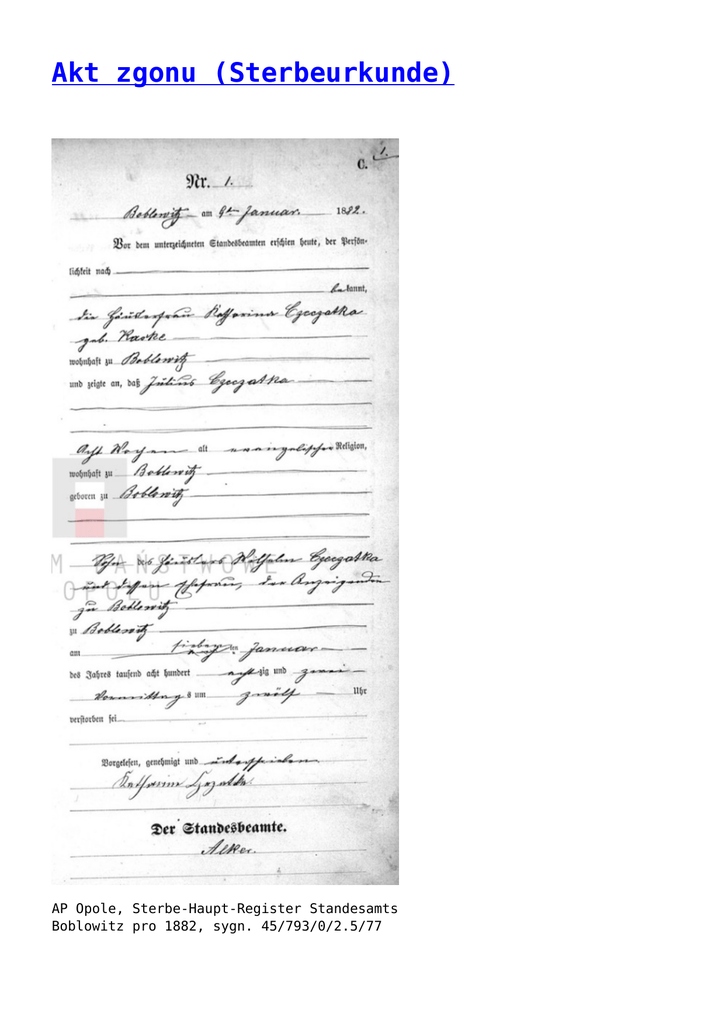 Akt zgonu (Sterbeurkunde)
C. 1.
Nr. 1.
Boblowitz am 9ten Januar 1882.
Vor dem unterzeichneten Standesbeamten erschien heute, der Persön-
lichkeit nach
bekannt,
die Häuslerfrau Katharina Czeczatka
geb. Kaske
wohnhaft zu Boblowitz
und zeigte an, daß Julius Czeczatka
Acht Wochen alt evangelischer Religion,
wohnhaft zu Boblowitz
geboren zu Boblowitz
Sohn des Häuslers Wilhelm Czeczatka
und dessen Ehefrau, der Anzeigenden
zu Boblowitz
zu Boblowitz
am siebenten Januar
des Jahres tausend acht hundert achtzig und zwei
Vormittags um zwölf Uhr
verstorben sei
Vorgelesen, genehmigt und unterschrieben
Katharina
Der Standesbeamte.
Alker.
AP Opole, Sterbe-Haupt-Register Standesamts
Boblowitz pro 1882, sygn. 45/793/0/2.5/77